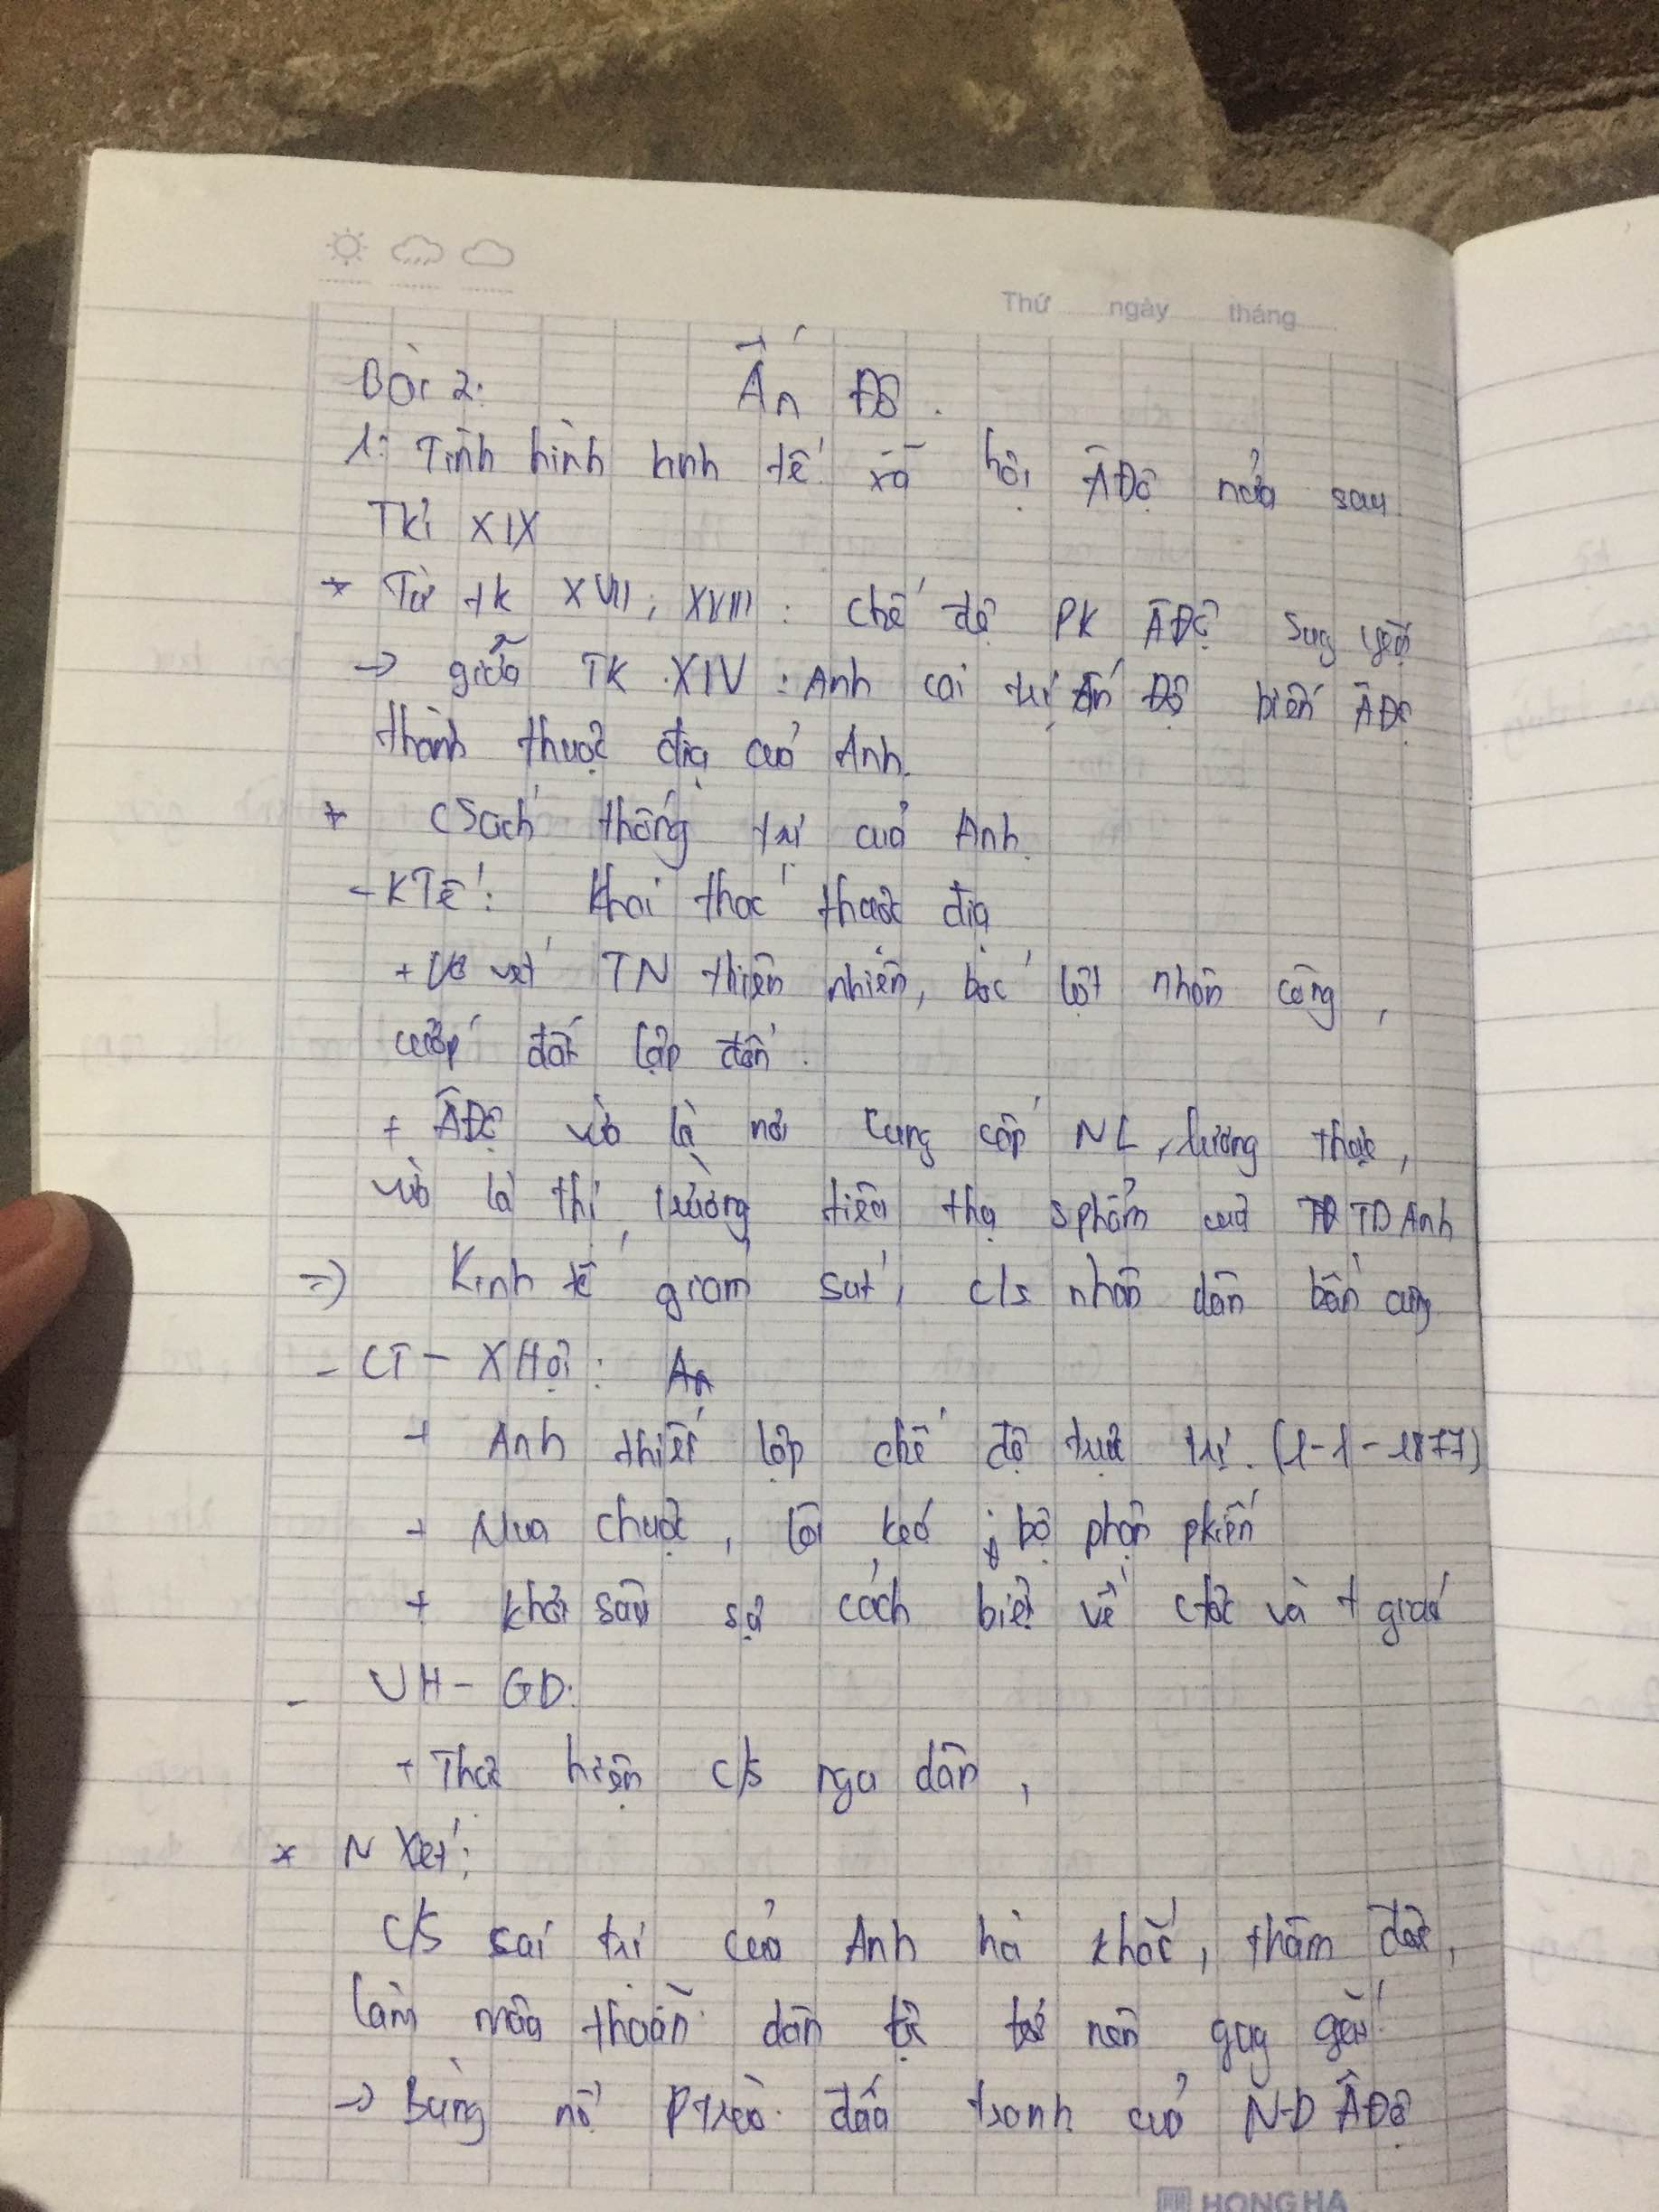 Thứ ngày tháng
Bài 2: Ấn Độ.
1: Tình hình kinh tế xã hội ÂĐộ nửa sau
Tkỉ XIX
* Từ tk XVII, XVIII: chế độ PK ÂĐộ suy yếu
-> giữa TK XIV: Anh cai trị Ấn Độ biến ÂĐộ
thành thuộc địa của Anh.
* CSách thống trị của Anh.
- KTế: Khai thác thuộc địa
+ Vơ vét TN thiên nhiên, bóc lột nhân công,
cướp đất lập đồn.
+ ÂĐộ vừa là nơi cung cấp NL, lương thực,
vừa là thị trường tiêu thụ sphẩm của TDAnh
=> Kinh tế giảm sút, c/s nhân dân bần cùng
- CT - XHội:
+ Anh thiết lập chế độ trực trị. (1-1-1877)
+ Mua chuộc, lôi kéo bộ phận pkiến
+ khơi sâu sự cách biệt về ctộc và t giáo
- VH - GD:
+ Thực hiện c/s ngu dân,
* N Xét:
c/s cai trị của Anh hà khắc, thâm độc,
làm mâu thuẫn dân tộc trở nên gay gắt
-> Bùng nổ Ptrào đấu tranh của N-D ÂĐộ
HONG HA